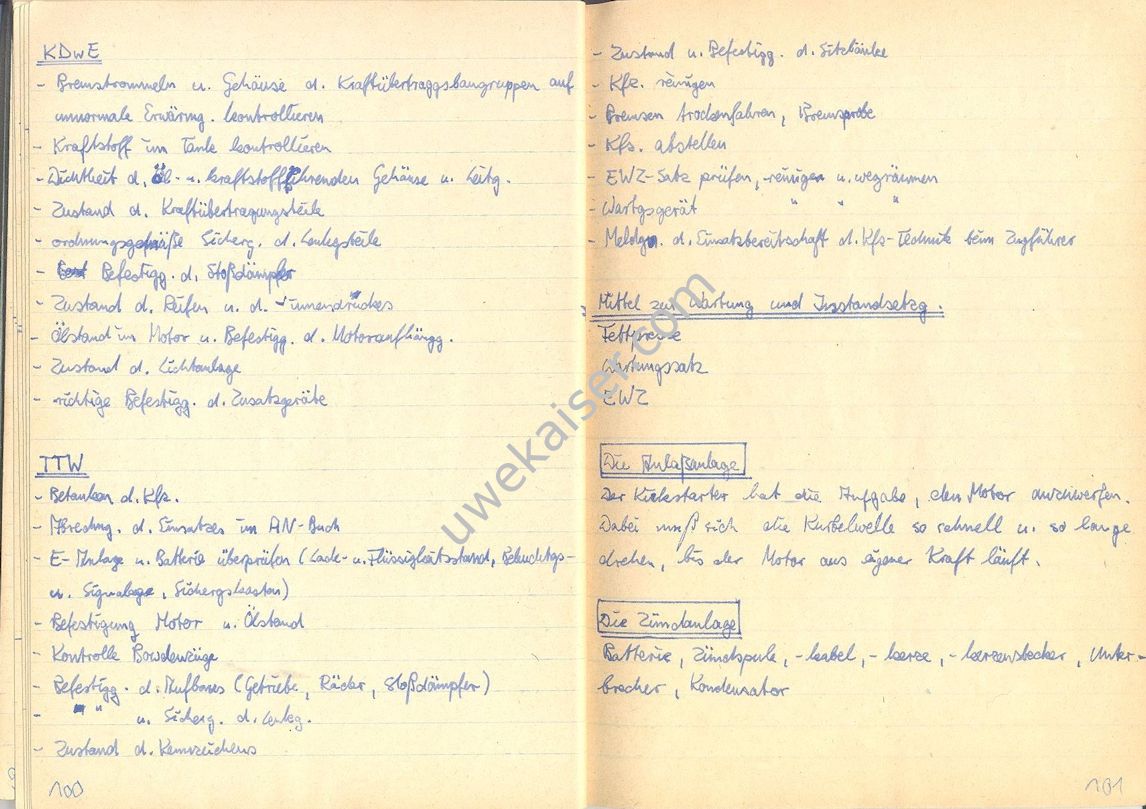 KDwE
- Bremstrommeln u. Gehäuse d. Kraftübertraggsbaugruppen auf
unnormale Erwärmg. kontrollieren
- Kraftstoff im Tank kontrollieren
- Dichtheit d. Öl- u. kraftstoffführenden Gehäuse u. Leitg.
- Zustand d. Kraftübertragungsteile
- ordnungsgemäße Sicherg. d. Lenkgsteile
- Befestigg. d. Stoßdämpfer
- Zustand d. Reifen u. d. -innendruckes
- Ölstand im Motor u. Befestigg. d. Motoraufhängg.
- Zustand d. Lichtanlage
- richtige Befestigg. d. Zusatzgeräte
TTW
- Betanken d. Kfz.
- Abrechng. d. Einsatzes im AN-Buch
- E-Anlage u. Batterie überprüfen (Lade- u. Flüssigkeitsstand, Beleuchtgs-
u. Signalage, Sichergskasten)
- Befestigung Motor u. Ölstand
- Kontrolle Bowdenzüge
- Befestigg. d. Aufbaues (Getriebe, Räder, Stoßdämpfer)
- " " u. Sicherg. d. Lenkg.
- Zustand d. Kennzeichens
100
- Zustand u. Befestigg. d. Sitzbänke
- Kfz. reinigen
- Bremsen trockenfahren, Bremsprobe
- Kfz. abstellen
- EWZ-Satz prüfen, reinigen u. wegräumen
- Wartgsgerät " " "
- Meldgn. d. Einsatzbereitschaft d. Kfz-Technik beim Zugführer
Mittel zur Wartung und Instandsetzg.
Fettpresse
Wartungssatz
EWZ
Die Anlaßanlage
Der Kickstarter hat die Aufgabe, den Motor durchwerfen.
Dabei muß sich die Kurbelwelle so schnell u. so lange
drehen, bis der Motor aus eigener Kraft läuft.
Die Zündanlage
Batterie, Zündspule, -kabel, -kerze, -kerzenstecker, Unter-
brecher, Kondensator
101
uwekaiser.com